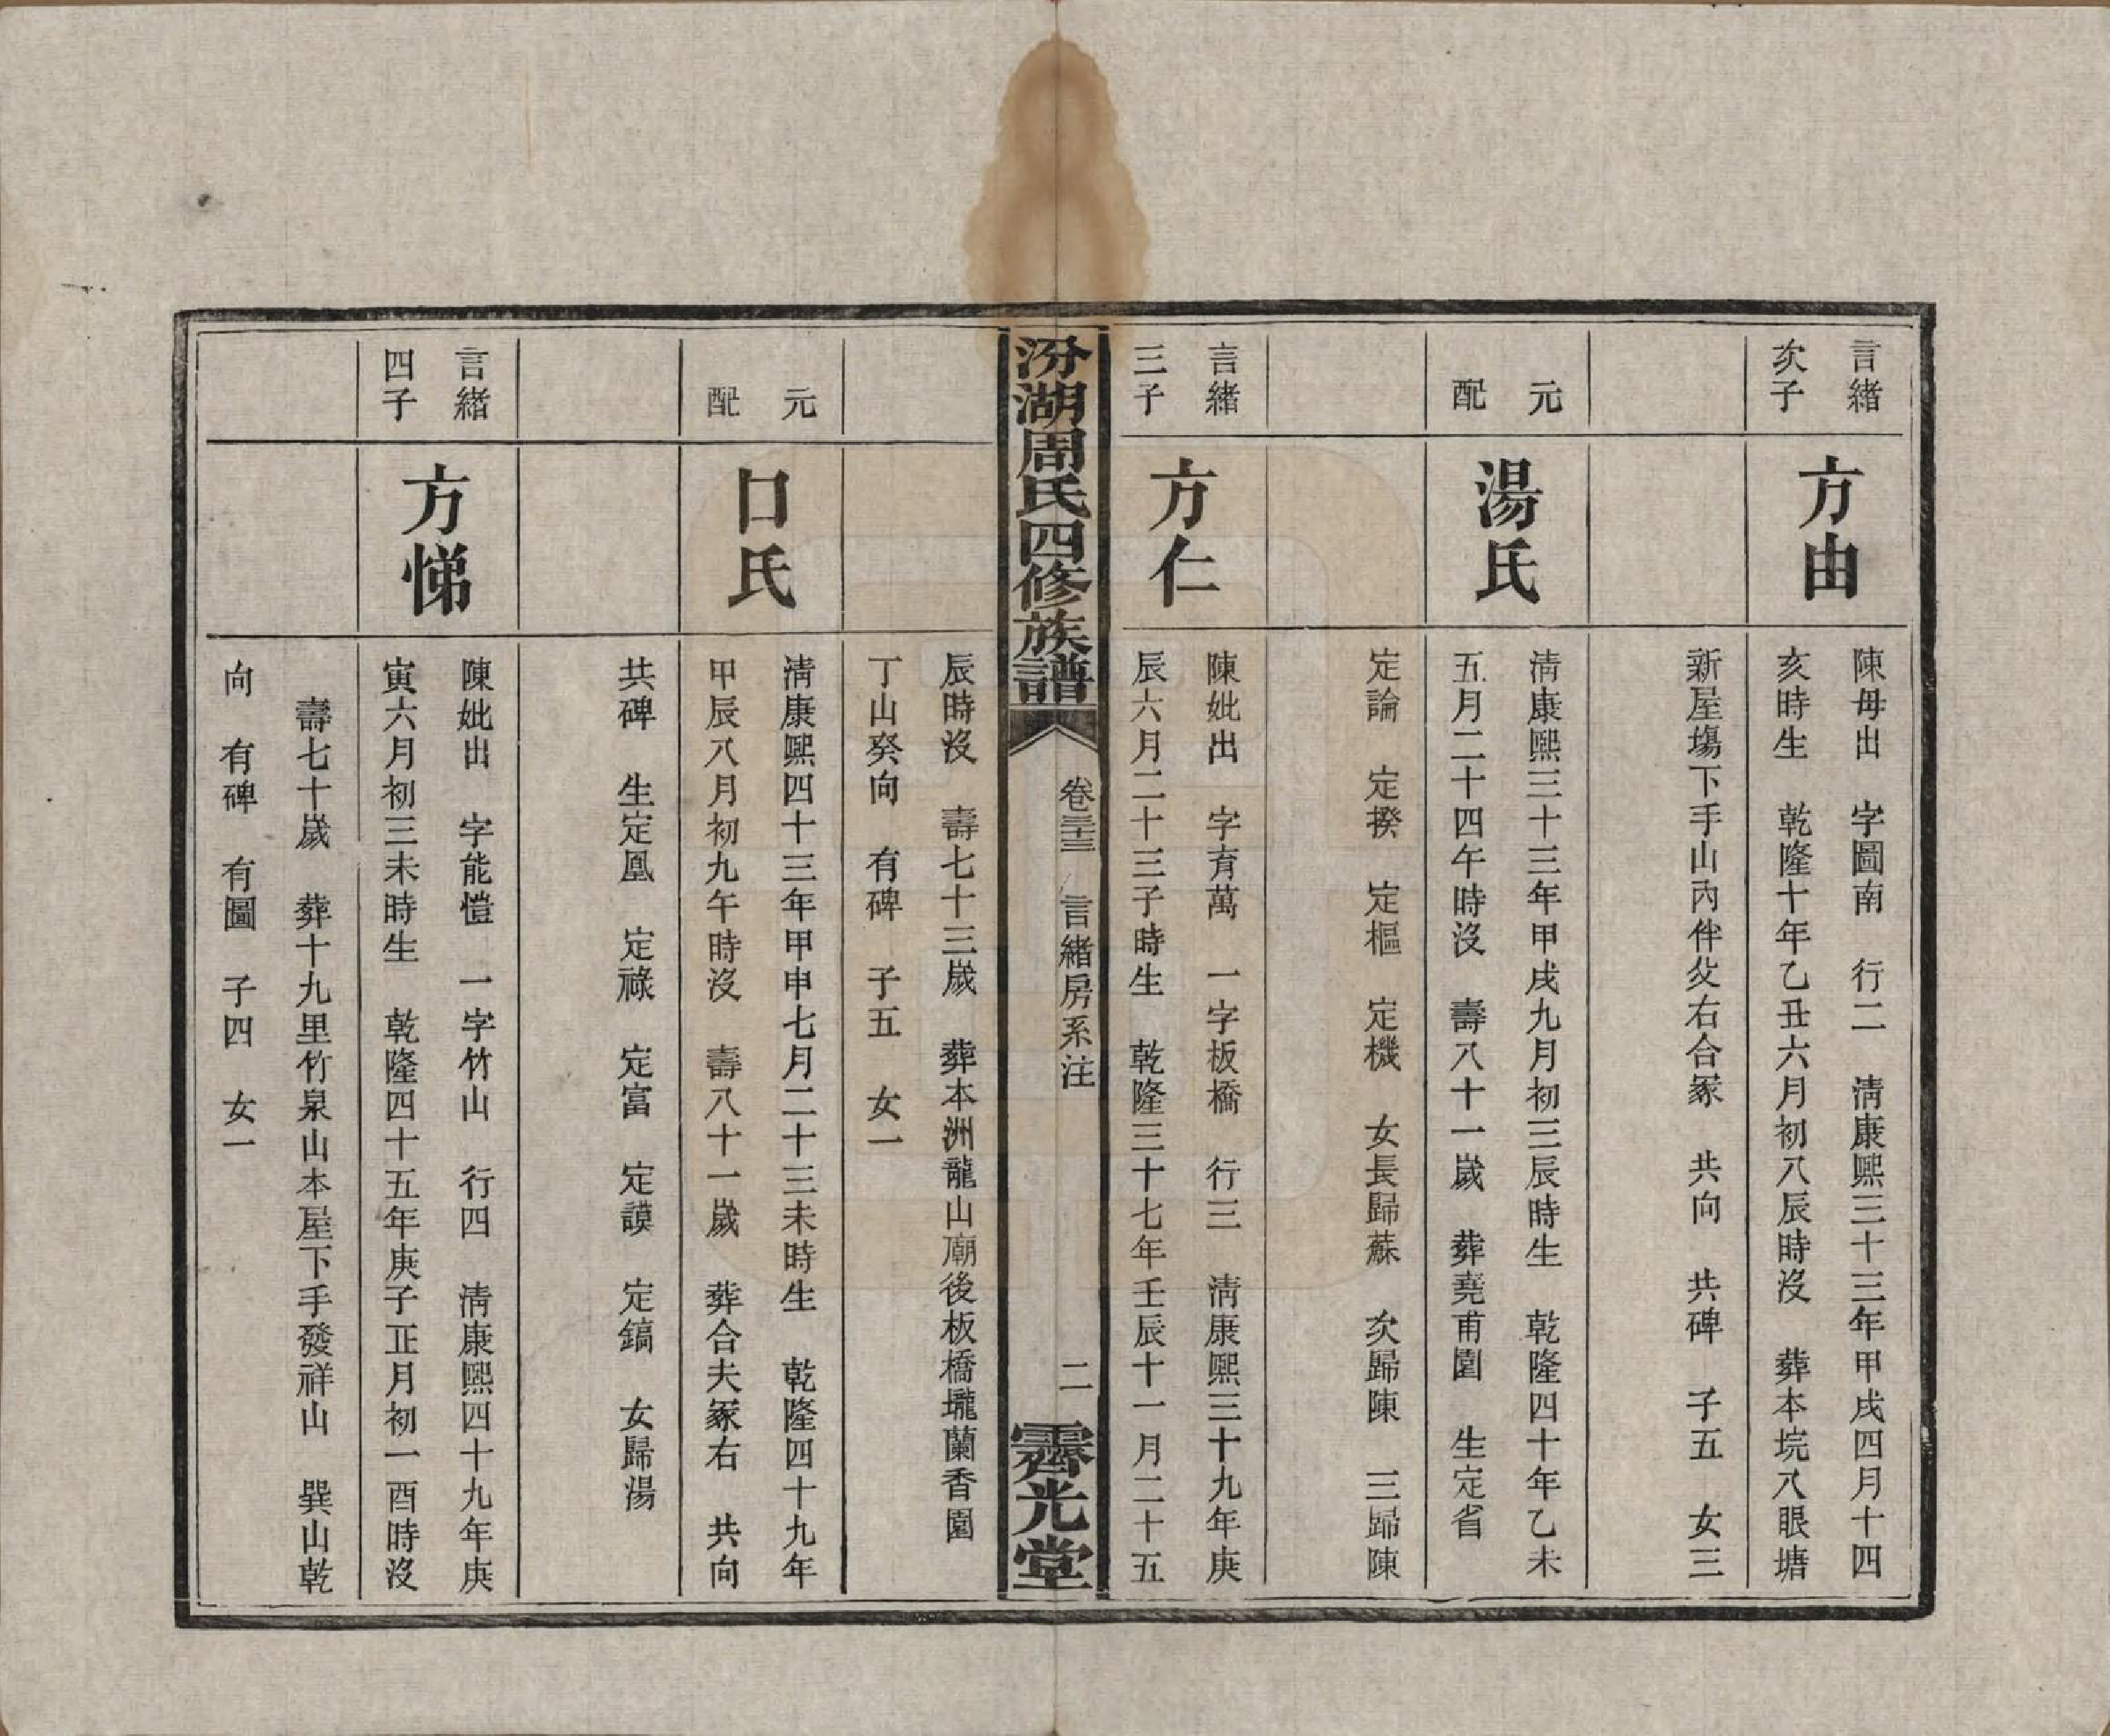 言緒
次子
方由
陳母出　字圖南　行二　清康熙三十三年甲戌四月十四
亥時生　乾隆十年乙丑六月初八辰時沒　葬本垸八眼塘
新屋塲下手山丙伴父右合冢　共向　共碑　子五　女三
元
配
湯氏
清康熙三十三年甲戌九月初三辰時生　乾隆四十年乙未
五月二十四午時沒　壽八十一歲　葬堯甫園　生定省
定論　定揆　定樞　定機　女長歸蘇　次歸陳　三歸陳
言緒
三子
方仁
陳妣出　字育萬　一字板橋　行三　清康熙三十九年庚
辰六月二十三子時生　乾隆三十七年壬辰十一月二十五
汾湖周氏四修族譜
卷三十三　言緒房系注
二
霽光堂
辰時沒　壽七十三歲　葬本洲龍山廟後板橋壠蘭香園
丁山癸向　有碑　子五　女一
元
配
口氏
清康熙四十三年甲申七月二十三未時生　乾隆四十九年
甲辰八月初九午時沒　壽八十一歲　葬合夫冢右　共向
共碑　生定凰　定祿　定富　定謨　定鎬　女歸湯
言緒
四子
方悌
陳妣出　字能愷　一字竹山　行四　清康熙四十九年庚
寅六月初三未時生　乾隆四十五年庚子正月初一酉時沒
壽七十歲　葬十九里竹泉山本屋下手發祥山　巽山乾
向　有碑　有圖　子四　女一